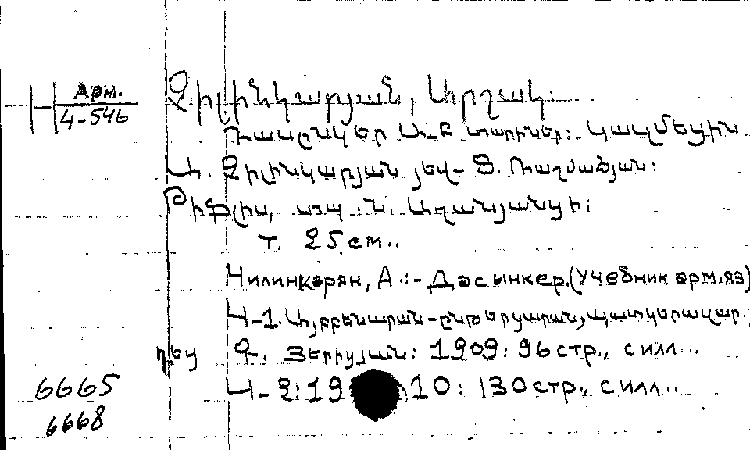 Арм.
4-546
Ջիլինկարյան, Արշակ.
Դասընկեր Ա-Բ տարիներ: Կազմեցին
Ա. Ջիլինկարյան յեվ
Թիֆլիս, տպ. Ն. Աղանյանցի:
т. 25 см..
Чилинкарян, А.:- Дасынкер. (Учебник арм.яз)
Կ-1. Այբբենարան-ընթերցարան, պատկերազար.
դեպ Գ. Յերիցյան: 1909: 96 стр., с илл..
Կ-2: 19 10: 130 стр., с илл..
6665
6668